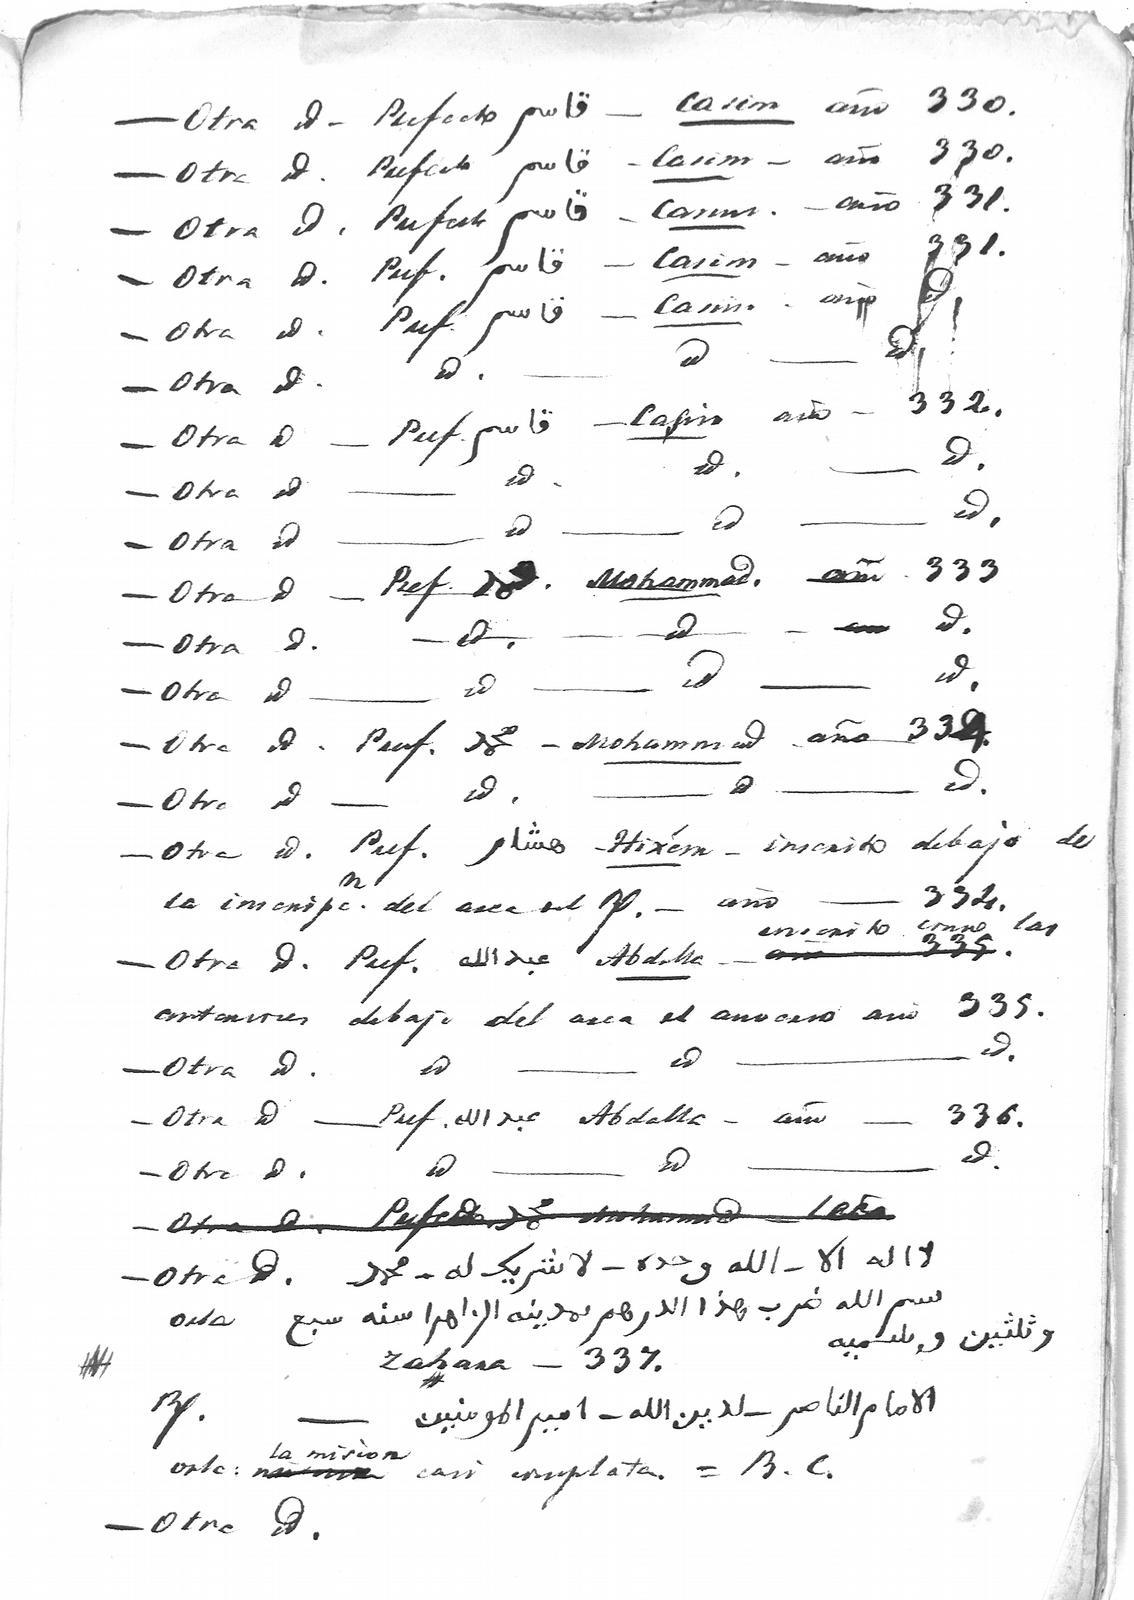 — Otra id - Prefecto قاسم — Casim año 330.
— Otra id. Prefecto قاسم - Casim - año 330.
— Otra id. Prefecto قاسم - Casim. - año 331.
— Otra id. Pref. قاسم — Casim - año 331.
— Otra id. Pref. قاسم — Casim. año id.
— Otra id. id. — id — id.
— Otra id — Pref. قاسم — Casim año - 332.
— Otra id — id. id. — id.
— Otra id — id — id — id.
— Otra id — Pref. محمد. Mohammad. año 333
— Otra id. — id. — id - id.
— Otra id — id — id — id.
— Otra id. Pref. محمد - Mohammad año 334.
— Otra id — id. — id — id.
— Otra id. Pref. هشام - Hixem - inscrito debajo de
la inscripcn. del area del Rv. — año — 334.
inscrito como las
— Otra id. Pref. عبد الله Abdalla - año 335.
anteriores debajo del area el anverso año 335.
— Otra id. id — id — id.
— Otra id — Pref. عبد الله Abdalla - año — 336.
— Otra id. id — id — id.
— Otra id. Prefecto محمد Mohammad
— Otra id. لا اله الا - الله وحده - لا شريك له - محمد
orla بسم الله ضرب هذا الدرهم بمدينة الزاهرا سنة سبع
وثلثين وثلثميه
Zahara — 337.
Rv. — الامام الناصر - لدين الله - امير المومنين
la mision
orla: casi completa. = B. C.
— Otra id.